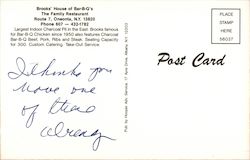 Brooks' House of Bar-B-Q's
The Family Restaurant
Route 7, Oneonta, N.Y. 13820
Phone 607 — 432-1782
Largest Indoor Charcoal Pit in the East. Brooks famous
for Bar-B-Q Chicken since 1950 also features Charcoal
Bar-B-Q Beef, Pork, Ribs and Steak. Seating Capacity
for 300. Custom Catering, Take-Out Service.
PLACE
STAMP
HERE
56037
Post Card
I think you
have one
of these
already